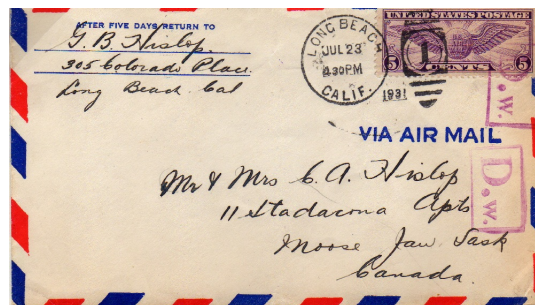 AFTER FIVE DAYS RETURN TO
G. B. Hislop.
305 Colorado Place.
Long Beach. Cal
LONG BEACH
JUL 23
4.30PM
CALIF.
1931
1
UNITED STATES POSTAGE
5 CENTS 5
VIA AIR MAIL
D.W.
D.W.
Mr & Mrs C. A. Hislop
11 Stadacona Apts
Moose Jaw Sask
Canada.